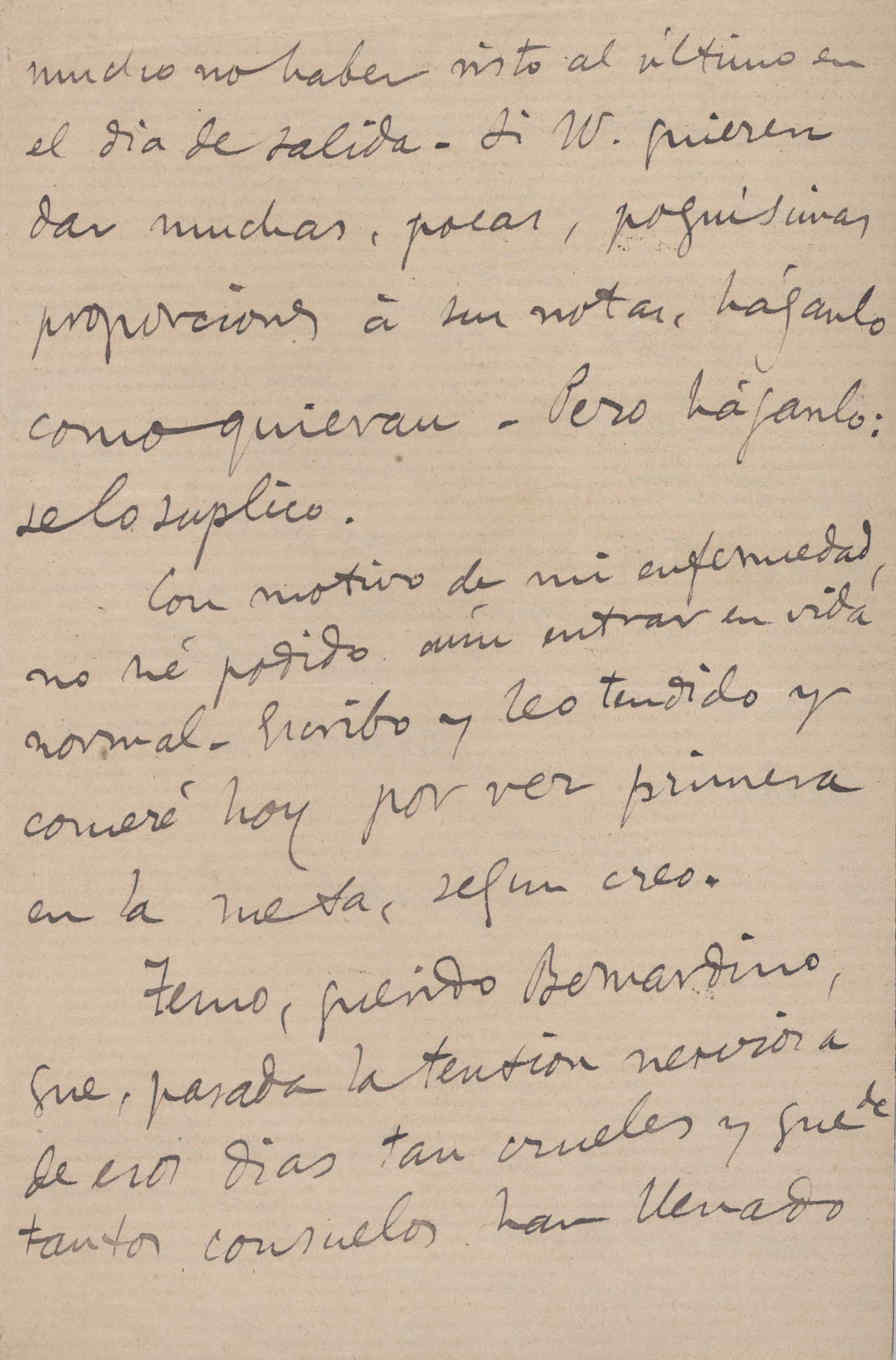 mucho no haber visto al último en
el dia de salida - Si VV. quieren
dar muchas, pocas, poquísimas
proporciones á sus notas, háganlo
como quieran - Pero háganlo:
se lo suplico.
Con motivo de mi enfermedad,
no hé podido aún entrar en vida
normal - Escribo y leo tendido y
comeré hoy por vez primera
en la mesa, segun creo.
Temo, querido Bernardino,
que, pasada la tension nerviosa
de esos dias tan crueles y que de
tantos consuelos han llenado